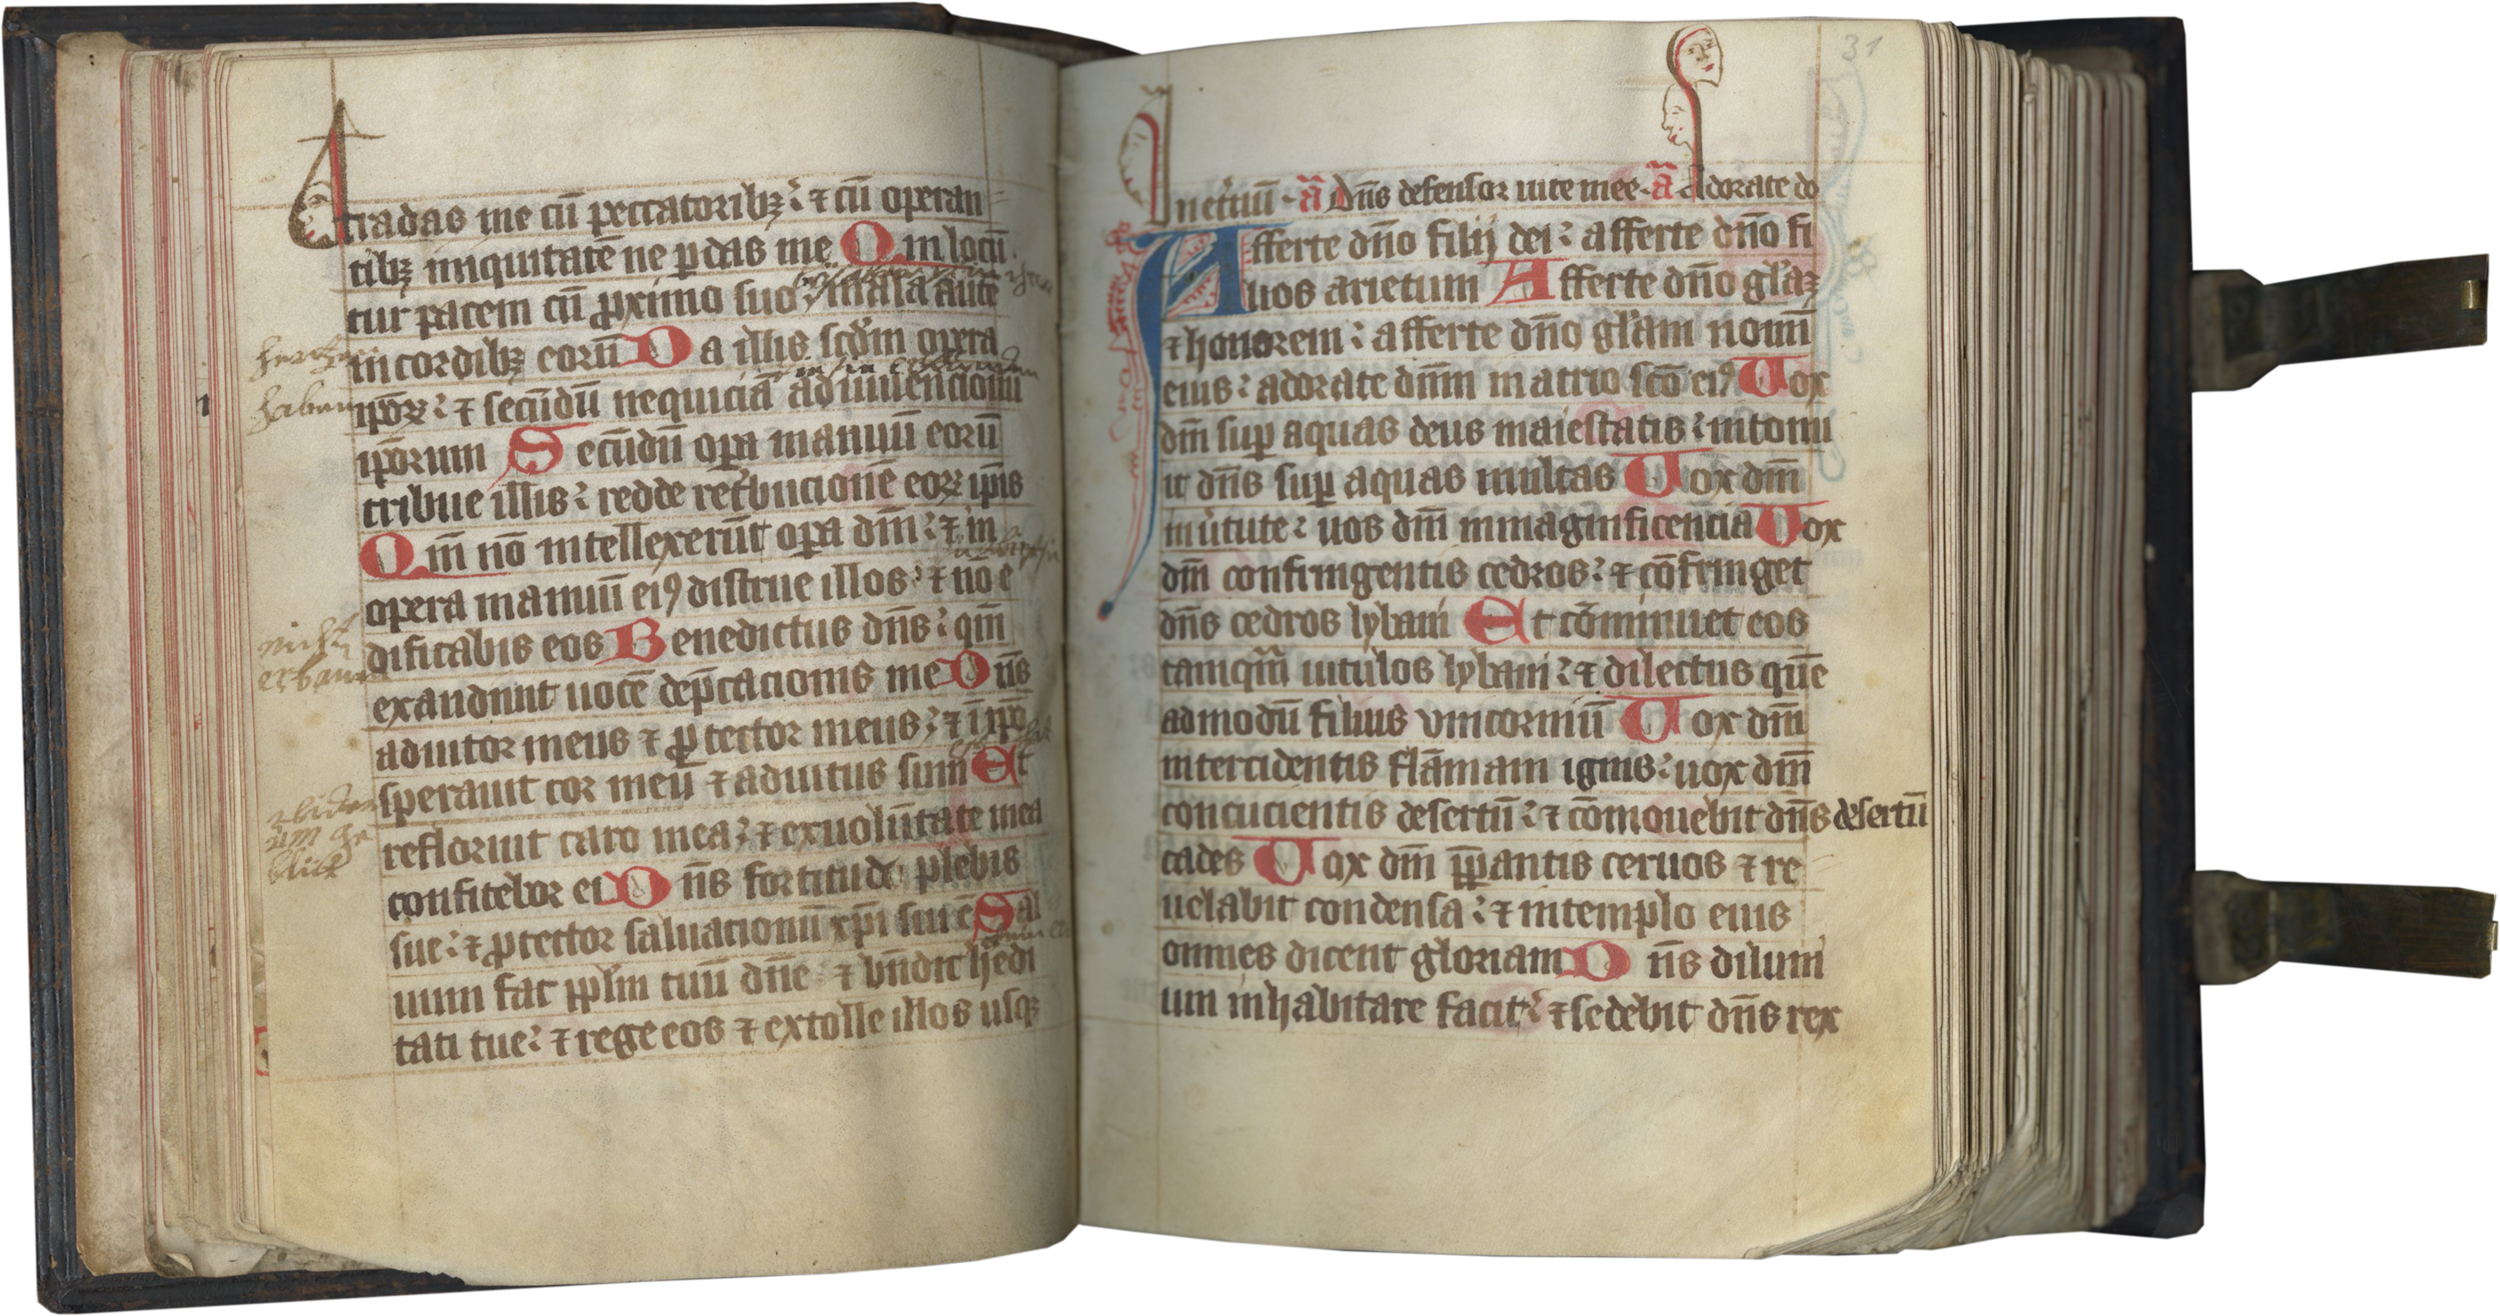 tradas me cū peccatoribꝫ ⁊ cū operan
tibꝫ iniquitatē ne ꝑdas me Qui locū
tur pacem cū ꝓximo suo mala autē
in cordibꝫ eorū Da illis scd̄m opera
ip̄oꝝ ⁊ secūdū nequiciā adinuencionū
ip̄orum Secūdū oꝑa manuū eorū
tribue illis redde ret̄bucionē eoꝝ ip̄is
Qm̄ nō intellexerūt oꝑa dn̄i ⁊ in
opera manuū eiꝰ distrue illos ⁊ nō e
dificabis eos Benedictus dn̄s qm̄
exaudiuit uocē dep̄cacionis me Dn̄s
adiutor meus ⁊ ꝓtector meus ⁊ ī ip̄o
sperauit cor meū ⁊ adiutus sum Et
refloruit caro mea ⁊ ex uolūtate mea
confitebor ei Dn̄s fortitudo plebis
sue ⁊ ꝓtector saluacionū xp̄i sui ē Sal
uum fac pp̄lm tuū dn̄e ⁊ bn̄dic hedi
tati tue ⁊ rege eos ⁊ extolle illos usqꝫ
hertzen
haben
nicht
erbauen
31
In et̄nū ā Dn̄s defensor uite mee ā Adorate do
Afferte dn̄o filij dei afferte dn̄o fi
lios arietum Afferte dn̄o gl̄aꝫ
⁊ honorem afferte dn̄o gl̄am nomī
eius adorate dn̄m in atrio scō eiꝰ Uox
dn̄i suꝑ aquas deus maiestatis intonu
it dn̄s suꝑ aquas multas Uox dn̄i
in ūtute uos dn̄i in magnificencia Uox
dn̄i confringentis cedros ⁊ cōfringet
dn̄s cedros lybani Et cōminuet eos
tamqm̄ uitulos lybani ⁊ dilectus quē
admodū filius vnicorniū Uox dn̄i
intercidentis flāmam ignis uox dn̄i
concucientis desertū ⁊ cōmouebit dn̄s desertū
cades Uox dn̄i p̄ꝑantis ceruos ⁊ re
uelabit condensa ⁊ in templo eius
omnes dicent gloriam Dn̄s diluui
um inhabitare facit ⁊ sedebit dn̄s rex